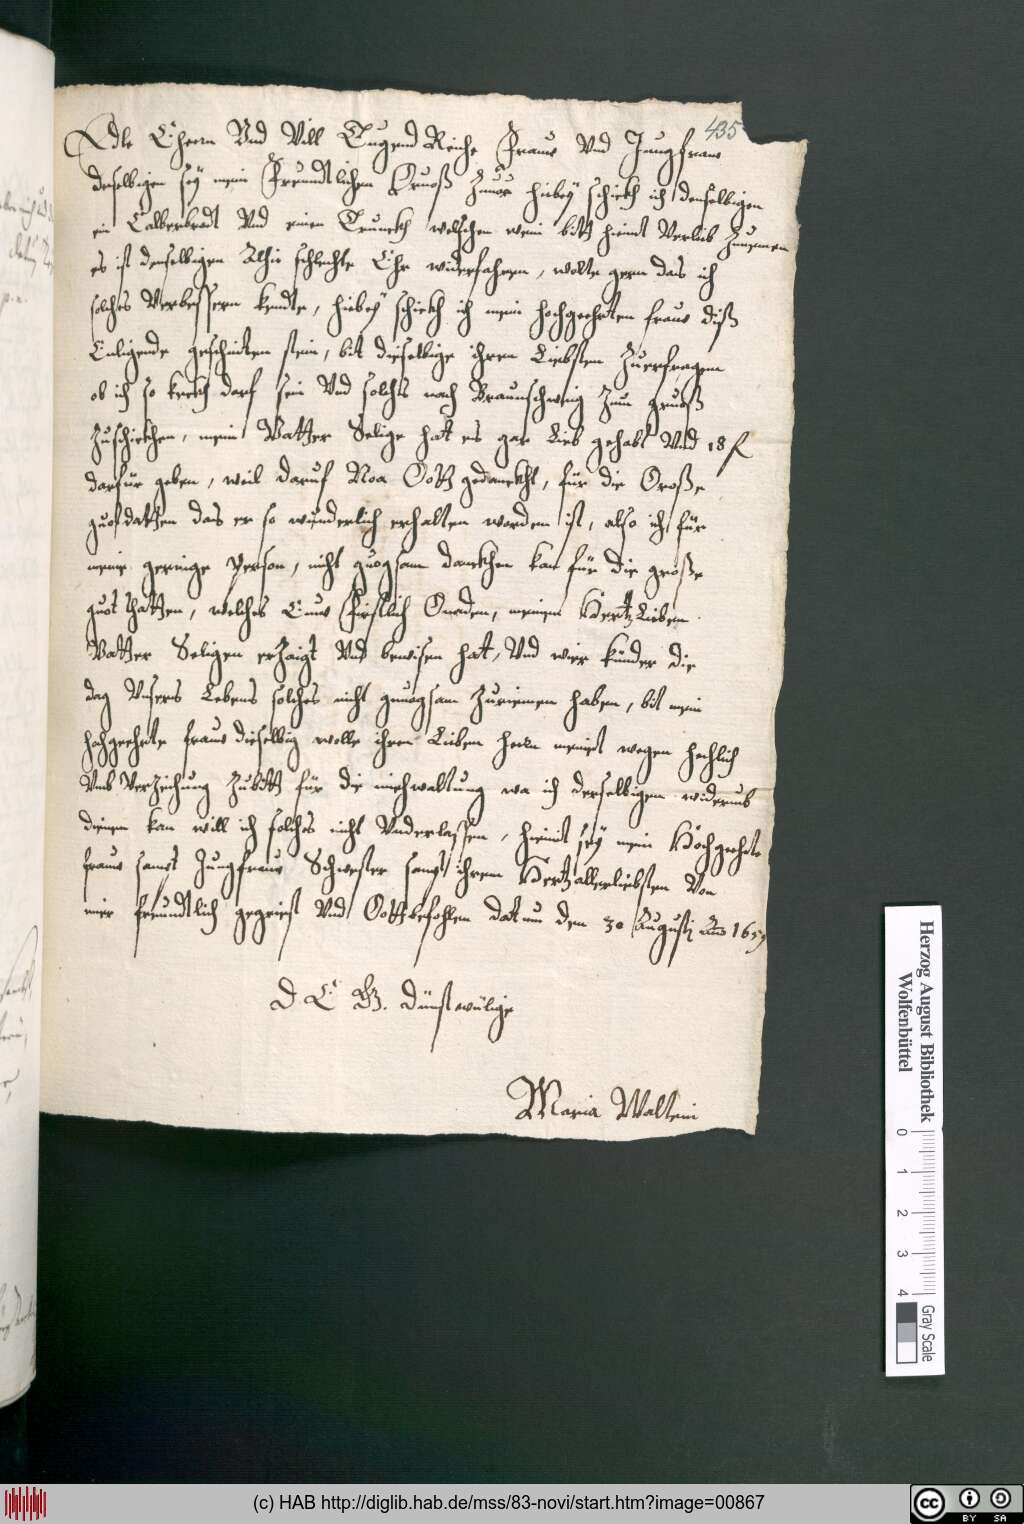 435
Edle Ehern Vnd Vill Tugend Reiche Fraw Vnd Jungfraw
deselbigen sey mein Freundtlichen Gruoß Zuuor hiebey schickh ich denselbigen
ein Calberbradt Vnd einen Trunckh welschen wein bitt hiemit Verlieb Zunemen
es ist denselbigen Alhie schlechte Ehr widerfahren, wolte gern das ich
solches Verbessern kendte, hiebey schickh ich mein hochgeehrten fraw diß
Einligende geschniten stein, bit dieselbige ihren Liebsten Zuerfragen
ob ich so keckh darf sein Vnd solches nach Braunschweig Zum gruoß
Zuschickhen, mein Vatter Selige hat es gar Lieb gehabt Vnd 18 f
darfür geben, weil daruf Noa Gott gedanckht, für die Große
guotdatten das er so wunderlich erhalten worden ist, also ich für
meine geringe Person, nicht guogsam danckhen kan für die große
guot thatten, welches Euw Firstlich Gnaden, meinem Hertz Lieben
Vatter Seligen erZaigt Vnd bewisen hat, Vnd wier künder die
dag Vnsers Lebens solches nicht gnuogsam Zuriemen haben, bit mein
hochgeehrte fraw dieselbig wolle ihren Lieben hern meinet wegen hechlich
Vmb VerZeichung Zubitt für die miehwaltung wa ich derselbigen widerumb
dienen kan will ich solches nicht Vnderlassen, hiemit sey mein Hochgeehrte
fraw sampt Jungfraw Schwester sampt ihrem Hertzallerliebsten Von
mir freundtlich gegriest Vnd Gott befohlen datum den 30 Augusti Ano 1659
D E W. Dinstwilige
Maria Waltein
Herzog August Bibliothek
Wolfenbüttel
0 1 2 3 4
Gray Scale
(c) HAB http://diglib.hab.de/mss/83-novi/start.htm?image=00867
cc BY SA